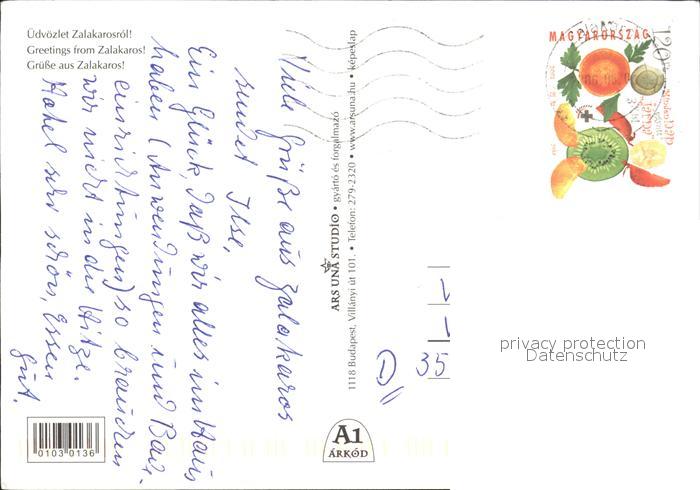 Üdvözlet Zalakarosról!
Greetings from Zalakaros!
Grüße aus Zalakaros!
Viele Grüße aus Zalakaros
sendet Ilse,
Ein Glück, daß wir alles im Haus
haben (Anwendungen und Bade-
einrichtungen) so brauchen
wir nicht in die Hitze.
Hotel sehr schön, Essen
gut.
0103 0136
ARS UNA STUDIO • gyártó és forgalmazó
1118 Budapest, Villányi út 101. • Telefon: 279-2320 • www.arsuna.hu • képeslap
A1
ÁRKÓD
D
35
MAGYARORSZÁG
120
privacy protection
Datenschutz